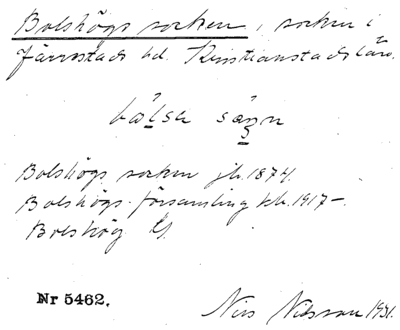 Bolshögs socken, socken i
Järrestads hd. Kristianstads län.
bålsa såzn
Bolshögs socken jb. 1874.
Bolshögs församling kb. 1917–.
Bolshög
Nr 5462.
Nils Nilsson 1931.